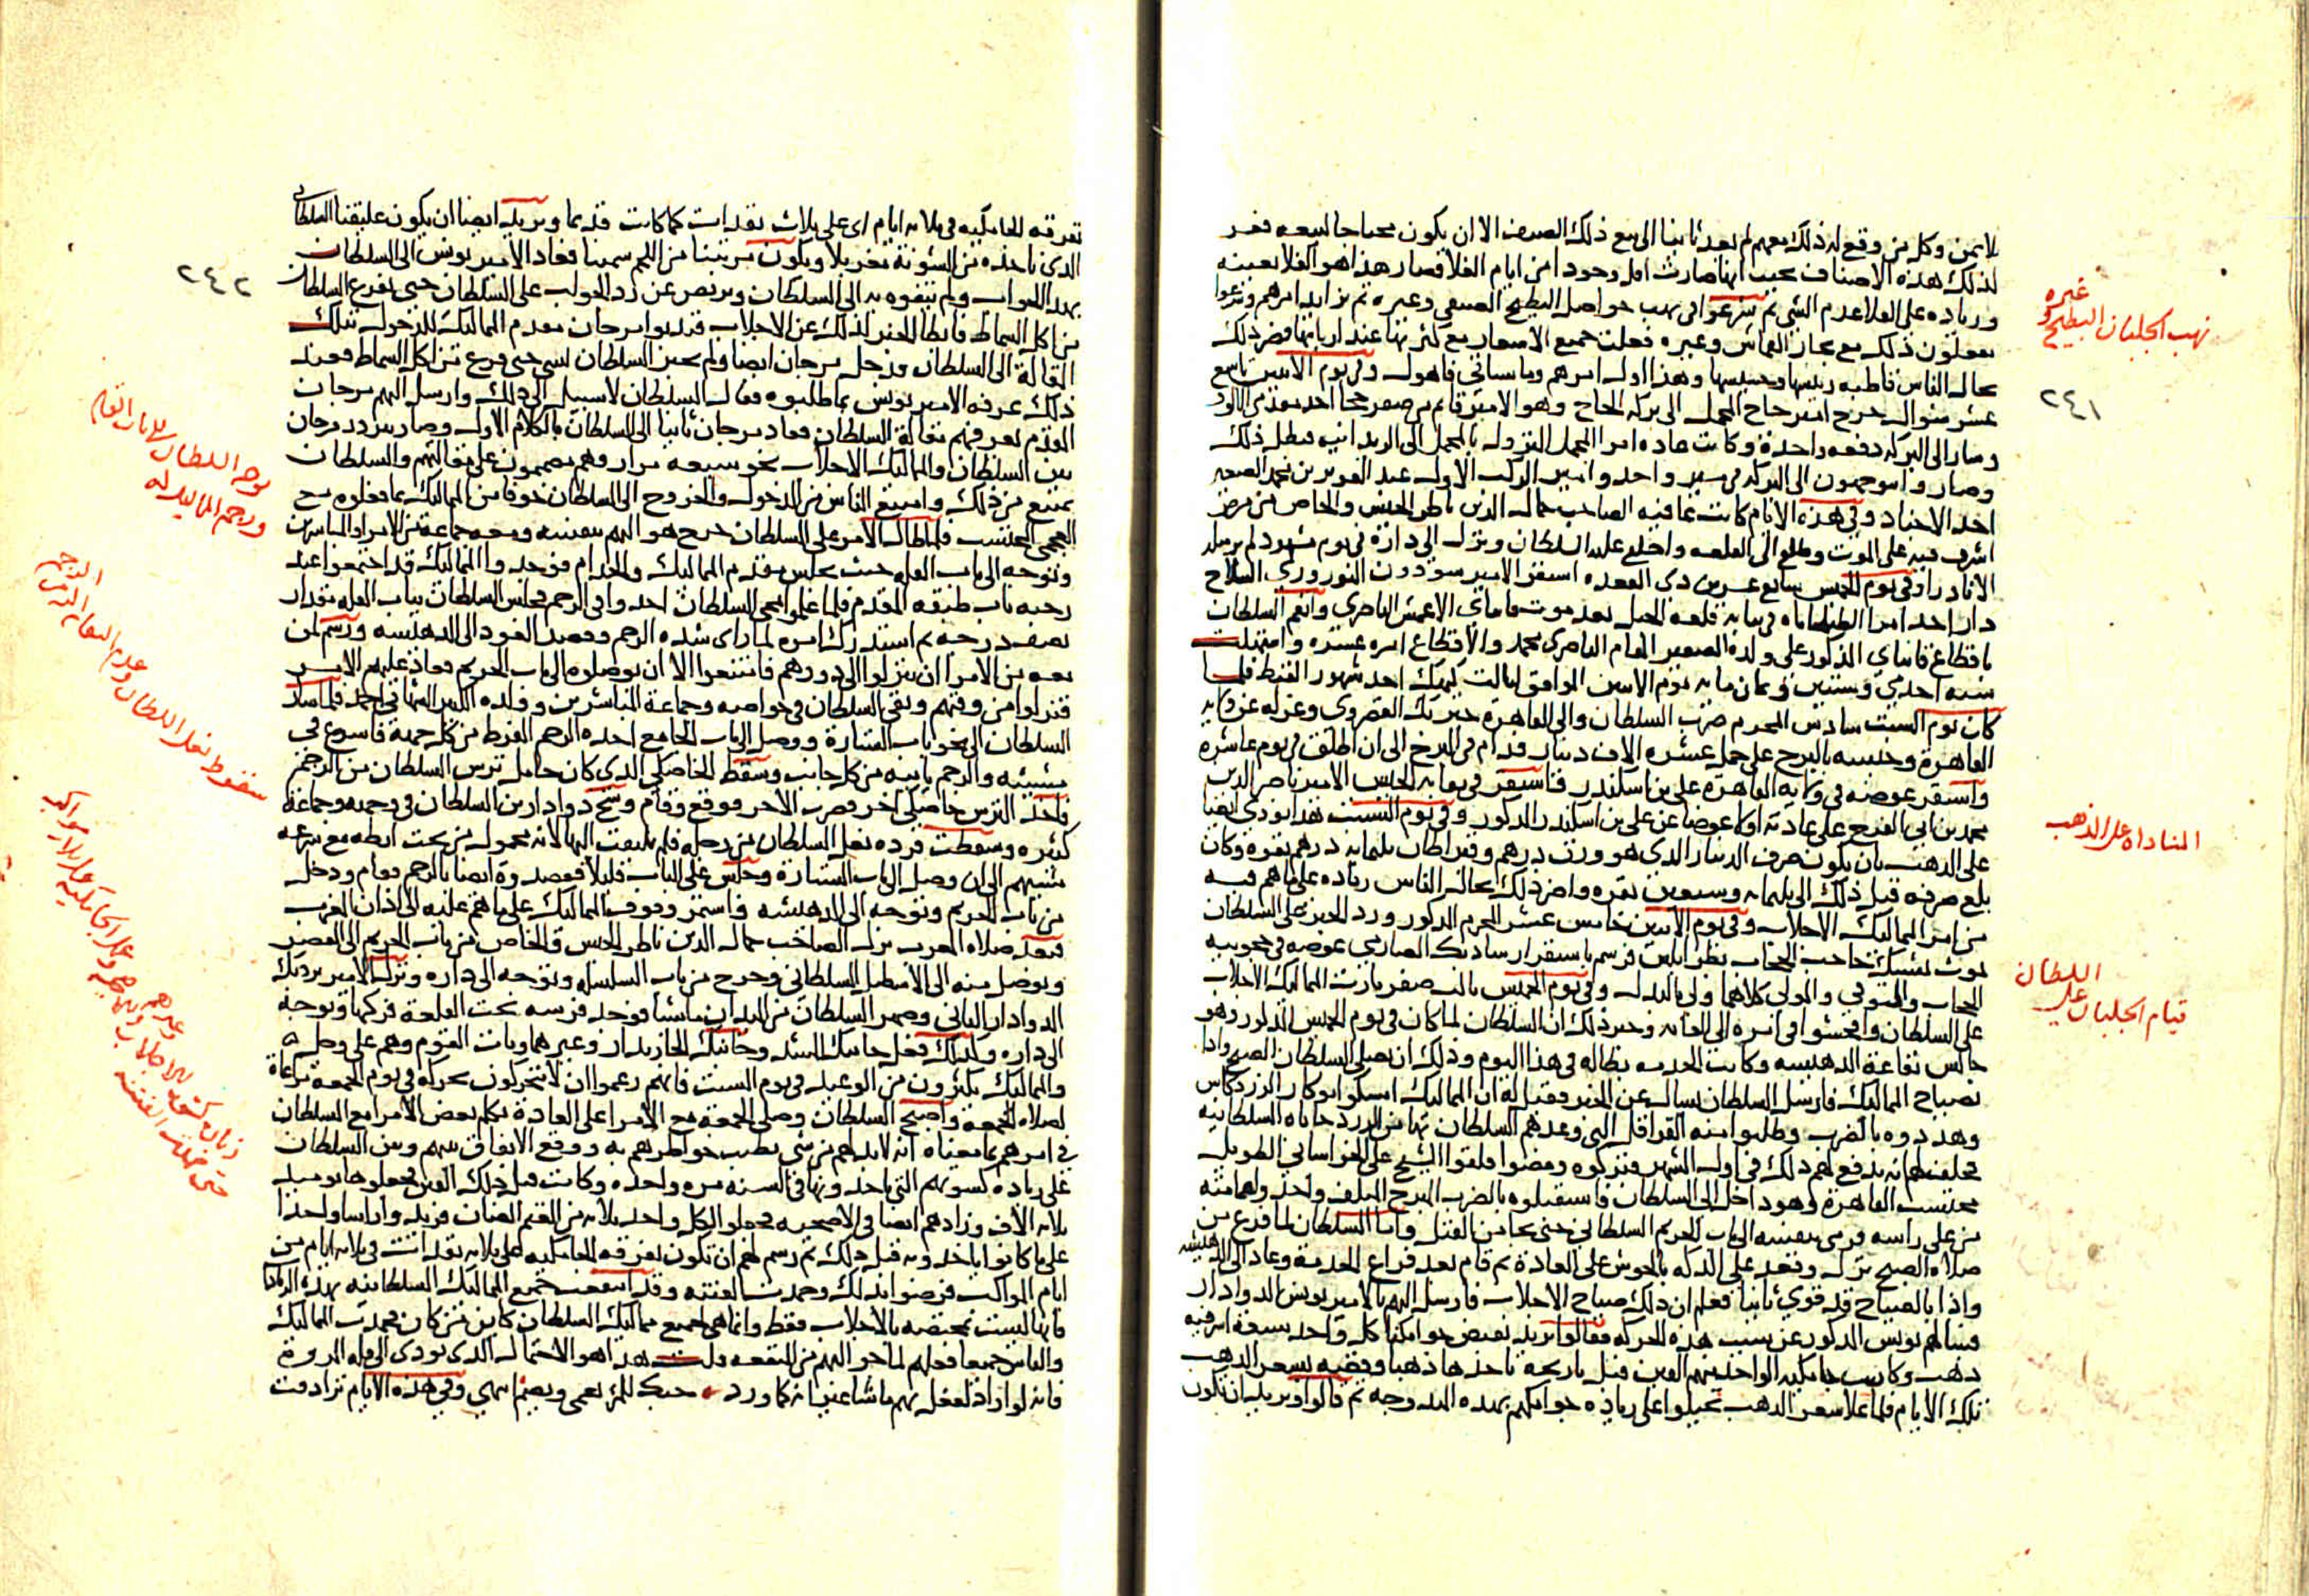 لا يمن وكل من وقع له ذلك معهم لم يعد ثانيا الى بيع ذلك الصنف الا ان يكون محتاجا لبيعه فعز
لذلك هذه الاصناف بحيث انها صارت اقل وجودا من ايام الغلا فصار هذا هو الغلا بعينه
وزياده على الغلا عدم الشي ثم شرعوا فى نهب حواصل البطيخ الصيفى وغيره ثم تزايد امرهم وشرعوا
يفعلون ذلك مع تجار القماش وغيره فغلت جميع الاسعار مع كثرتها عند اربابها فضر ذلك
بحال الناس قاطبه رئيسها وخسيسها وهذا اول امرهم وما سياتى فاهول وفى يوم الاثنين تاسع
عشر شوال خرج امير حاج المحمل الى بركة الحاج وهو الامير قانم من صفر خجا احد مقدمى الالوف
وسار الى البركه دفعه واحدة وكانت عاده امرا المحمل النزول بالمحمل الى الريدانيه فبطل ذلك
وصاروا يتوجهون الى البركه فى سير واحد وامير الركب الاول عبد العزيز بن محمد الصغير
احد الاجناد وفى هذه الايام كانت عافيه الصاحب جمال الدين ناظر الجيش والخاص من مرض
اشرف فيه على الموت وطلع الى القلعه واخلع عليه السلطان ونزل الى داره فى يوم مشهود لم ير مثله
الا نادرا وفى يوم الخميس سابع عشرين ذى القعده استقر الامير سودون النوروزى السلاح
دار احد امرا الطبلخاناه فى نيابه قلعه الجبل بعد موت قانباى الاعمش الناصرى وانعم السلطان
باقطاع قانباى المذكور على ولده الصغير المقام الناصرى محمد والاقطاع امره عشره واستهلت
سنه احدى وستين وثمان مايه يوم الاثنين الموافق لثالث كيهك احد شهور القبط فلما
كان يوم السبت سادس المحرم ضرب السلطان والى القاهرة خيربك القصروى وعزله عن ولايه
القاهرة وحبسه بالبرج على حمل عشره الاف دينار فدام فى البرج الى ان اطلق فى يوم عاشره
واستقر عوضه فى ولايه القاهرة على بن اسكندر واستقر فى نقابه الجيش الامير ناصر الدين
محمد بن ابى الفرج على عادته اولا عوضا عن على بن اسكندر المذكور وفى يوم السبت هذا نودى ايضا
على الذهب بان يكون صرف الدينار الذى هو وزن درهم وقيراطان ثلثمايه درهم نقره وكان
بلغ صرفه قبل ذلك الى ثلثمايه وسبعين نقره واضر ذلك بحال الناس زياده على ما هم فيه
من امر المماليك الاجلاب وفى يوم الاثنين خامس عشر المحرم المذكور ورد الخبر على السلطان
بموت يشبك حاجب الحجاب بطرابلس فرسم باستقرار شادبك الصارمى عوضه فى حجوبيه
الحجاب والمتوفى والمولى كلاهما ولى بالبذل وفى يوم الخميس ثالث صفر ثارت المماليك الاجلاب
على السلطان وافحشوا فى امره الى الغايه وخبر ذلك ان السلطان لما كان فى يوم الخميس المذكور وهو
جالس بقاعة الدهيشه وكانت الخدمه بطاله فى هذا اليوم وذلك ان يصلى السلطان الصبح واذا
بصياح المماليك فارسل السلطان يسال عن الخبر فقيل له ان المماليك امسكوا نوكار الزردكاش
وهددوه بالضرب وطلبوا منه القرقلات التى وعدهم السلطان بها من الزردخاناه السلطانيه
فحلف لهم انه يدفع لهم ذلك فى اول الشهر فتركوه ومضوا فلقوا الشيخ على الخراسانى الطويل
محتسب القاهرة وهو داخل الى السلطان فاستقبلوه بالضرب المبرح المتلف واخذوا عمامته
من على راسه فرمى بنفسه الى باب الحريم السلطانى حتى نجا من القتل واما السلطان لما فرغ من
صلاة الصبح نزل وقعد على الدكه بالحوش على العادة ثم قام بعد فراغ الخدمة وعاد الى الدهيشه
واذا بالصياح قد قوى ثانيا فعلم ان ذلك صياح الاجلاب فارسل اليهم بالامير يونس الدوادار
فسالهم يونس المذكور عن سبب هذه الحركه فقالوا نريد نقبض جوامكنا كل واحد سبعة اشرفيه
ذهب وكانت جامكيه الواحد منهم الفين قبل تاريخه ياخذها ذهبا وفضه بسعر الذهب
تلك الايام فلما غلا سعر الذهب تحيلوا على زياده جوامكهم بهذه المندوحه ثم قالوا ونريد ان تكون
نهب الجلبان البطيخ وغيره
٢٤١
المناداه على الذهب
قيام الجلبان على السلطان
تفرقه الجامكيه فى ثلاثه ايام اى على ثلاث نفقات كما كانت قديما ونريد ايضا ان يكون عليقنا السلطانى
الذى ناخذه من الشونة مغربلا ويكون مرتبنا من اللحم سمينا فعاد الامير يونس الى السلطان
بهذا الجواب ولم يتفوه به الى السلطان وتربص عن رد الجواب على السلطان حتى يفرغ السلطان
من اكل السماط فابطا الخبر لذلك عن الاجلاب فندبوا مرجان مقدم المماليك للدخول بتلك
المقالة الى السلطان فدخل مرجان ايضا ولم يخبر السلطان بشى حتى فرغ من اكل السماط فعند
ذلك عرفه الامير يونس بما طلبوه فقال السلطان لا سبيل الى ذلك وارسل اليهم مرجان
المقدم يعرفهم مقالة السلطان فعاد مرجان ثانيا الى السلطان بالكلام الاول وصار يتردد مرجان
بين السلطان والمماليك الاجلاب نحو سبعه مرار وهم مصممون على مقالتهم والسلطان
يمتنع من ذلك وامتنع الناس من الدخول والخروج الى السلطان خوفا من المماليك لما فعلوه مع
العجمى المحتسب فلما طال الامر على السلطان خرج هو اليهم بنفسه ومعه جماعه من الامرا والمباشرين
وتوجه الى باب القله حيث يجلس مقدم المماليك والخدام فوجد المماليك قد اجتمعوا عند
رحبه باب طبقه المقدم فلما علموا بمجى السلطان اخذوا فى الرجم فجلس السلطان بباب القله مقدار
نصف درجه ثم استدرك امره لما راى شده الرجم وقصد العود الى الدهيشه ورسم لمن
معه من الامرا ان ينزلوا الى دورهم فامتنعوا الا ان يوصلوه الى باب الحريم فعاد عليهم الامر
فنزلوا من وقتهم وبقى السلطان فى خواصه وجماعة المباشرين وولده الكبير المقام احمد فلما سار
السلطان الى نحو باب الستارة ووصل الى باب الجامع اخذه الرجم المفرط من كل جهة فاسرع فى
مشيته والرجم ياتيه من كل جانب وسقط الخاصكى الذى كان حامل ترس السلطان من الرجم
فاخذ الترس خاصكى اخر فضرب الاخر فوقع وقام وشج دوادار ابن السلطان فى وجهه وجماعة
كثيره وسقطت فرده نعل السلطان من رجله فلم يلتفت اليها لانه محمول من تحت ابطه مع سرعه
مشيهم الى ان وصل الى باب الستارة وجلس على الباب قليلا فقصدوة ايضا بالرجم فقام ودخل
من باب الحريم وتوجه الى الدهيشه واستمر وقوف المماليك على ما هم عليه الى اذان المغرب
فبعد صلاه المغرب نزل الصاحب جمال الدين ناظر الجيش والخاص من باب الحريم الى القصر
وتوصل منه الى الاسطبل السلطانى وخرج من باب السلسله وتوجه الى داره ونزل الامير بردبك
الدوادار الثانى وصهر السلطان من الميدان ماشيا فوجد فرسه تحت القلعة فركبها وتوجه
الى داره وكذلك فعل جانبك المشد وجانبك الخازندار وغيرهما وبات القوم وهم على وجل
والمماليك يكثرون من الوعيد فى يوم السبت فانهم زعموا ان لا يتحركون بحركه فى يوم الجمعة مراعاة
لصلاه الجمعة واصبح السلطان وصلى الجمعة مع الامرا على العادة فتكلم بعض الامرا مع السلطان
فى امرهم بما معناه انه لا بد لهم من شى تطيب خواطرهم به ووقع الاتفاق بينهم وبين السلطان
على زياده كسوتهم التى ياخذونها فى السنه مره واحده وكانت قبل ذلك الفين فجعلوها يوميذ
ثلاثه الاف وزادهم ايضا فى الاضحيه فجعلوا لكل واحد ثلاثه من الغنم الضان فزيدوا راسا واحدا
على ما كانوا ياخذونه قبل ذلك ثم رسم لهم ان تكون تفرقه الجامكيه على ثلاثه نفقات فى ثلاثه ايام من
ايام المواكب فرضوا بذلك وخمدت الفتنه وقد انتفعت جميع المماليك السلطانيه بهذه الزيادات
فانها ليست مختصه بالاجلاب فقط وانما هى لجميع مماليك السلطان كاين من كان فحمدت المماليك
والناس جميعا فعلهم لما جر اليهم من المنفعه قلت هذا هو الاحتمال الذى يودى الى قله المروة
فانه لو اراد لفعل بهم ما شا غير انه كما ورد حبك للشى يعمى ويصم انتهى وفى هذه الايام ترادفت
٢٤٢